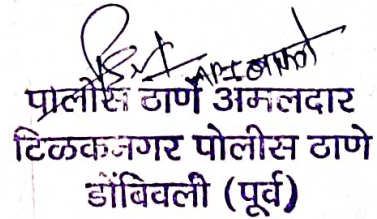 पोलीस ठाणे अमलदार
टिळकनगर पोलीस ठाणे
डोंबिवली (पूर्व)